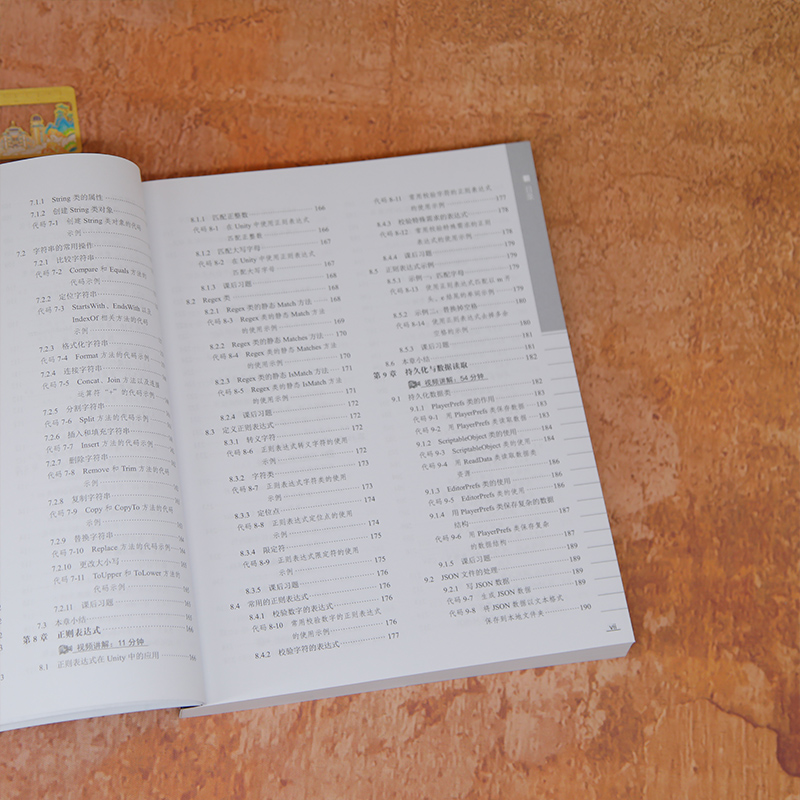 7.1.1 String 类的属性
7.1.2 创建 String 类对象
代码 7-1 创建 String 类对象的代码
示例
7.2 字符串的常用操作
7.2.1 比较字符串
代码 7-2 Compare 和 Equals 方法的
代码示例
7.2.2 定位字符串
代码 7-3 StartsWith、EndsWith 以及
IndexOf 相关方法的代码
示例
7.2.3 格式化字符串
代码 7-4 Format 方法的代码示例
7.2.4 连接字符串
代码 7-5 Concat、Join 方法以及连接
运算符“+”的代码示例
7.2.5 分割字符串
代码 7-6 Split 方法的代码示例
7.2.6 插入和填充字符串
代码 7-7 Insert 方法的代码示例
7.2.7 删除字符串
代码 7-8 Remove 和 Trim 方法的代码
示例
7.2.8 复制字符串
代码 7-9 Copy 和 CopyTo 方法的代码
示例
7.2.9 替换字符串
代码 7-10 Replace 方法的代码示例
7.2.10 更改大小写
代码 7-11 ToUpper 和 ToLower 方法的
代码示例
7.2.11 课后习题
7.3 本章小结
第 8 章 正则表达式
视频讲解：11 分钟
8.1 正则表达式在 Unity 中的应用
8.1.1 匹配正整数 166
代码 8-1 在 Unity 中使用正则表达式
匹配正整数 166
8.1.2 匹配大写字母 167
代码 8-2 在 Unity 中使用正则表达式
匹配大写字母 167
8.1.3 课后习题 168
8.2 Regex 类 168
8.2.1 Regex 类的静态 Match 方法 168
代码 8-3 Regex 类的静态 Match 方法
的使用示例 169
8.2.2 Regex 类的静态 Matches 方法 170
代码 8-4 Regex 类的静态 Matches 方法
的使用示例 170
8.2.3 Regex 类的静态 IsMatch 方法 171
代码 8-5 Regex 类的静态 IsMatch 方法
的使用示例 171
8.2.4 课后习题 172
8.3 定义正则表达式 172
8.3.1 转义字符 172
代码 8-6 正则表达式转义字符的使用
示例 172
8.3.2 字符类 173
代码 8-7 正则表达式字符类的使用
示例 173
8.3.3 定位点 174
代码 8-8 正则表达式定位点的使用
示例 174
8.3.4 限定符 175
代码 8-9 正则表达式限定符的使用
示例 175
8.3.5 课后习题 176
8.4 常用的正则表达式 176
8.4.1 校验数字的表达式 176
代码 8-10 常用校验数字的正则表达式
的使用示例 176
8.4.2 校验字符的表达式 177
代码 8-11 常用校验字符的正则表达式
的使用示例 177
8.4.3 校验特殊需求的表达式 178
代码 8-12 常用校验特殊需求的正则
表达式的使用示例 178
8.4.4 课后习题 179
8.5 正则表达式示例 179
8.5.1 示例一：匹配字母 179
代码 8-13 使用正则表达式匹配以 m 开
头、e 结尾的单词示例 179
8.5.2 示例二：替换掉空格 180
代码 8-14 使用正则表达式去掉多余
空格的示例 180
8.5.3 课后习题 181
8.6 本章小结 181
第 9 章 持久化与数据读取 182
视频讲解：54 分钟
9.1 持久化数据类 182
9.1.1 PlayerPrefs 类的作用 183
代码 9-1 用 PlayerPrefs 类保存数据 183
代码 9-2 用 PlayerPrefs 类读取数据 183
9.1.2 ScriptableObject 类的使用 184
代码 9-3 ScriptableObject 类的使用 184
代码 9-4 用 ReadData 类读取数据类
资源 186
9.1.3 EditorPrefs 类的使用 186
代码 9-5 EditorPrefs 类的使用 186
9.1.4 用 PlayerPrefs 类保存复杂的数据
结构 187
代码 9-6 用 PlayerPrefs 类保存复杂
的数据结构 187
9.1.5 课后习题 189
9.2 JSON 文件的处理 189
9.2.1 写 JSON 数据 189
代码 9-7 生成 JSON 数据 189
代码 9-8 将 JSON 数据以文本格式
保存到本地文件夹 190
目录
vii